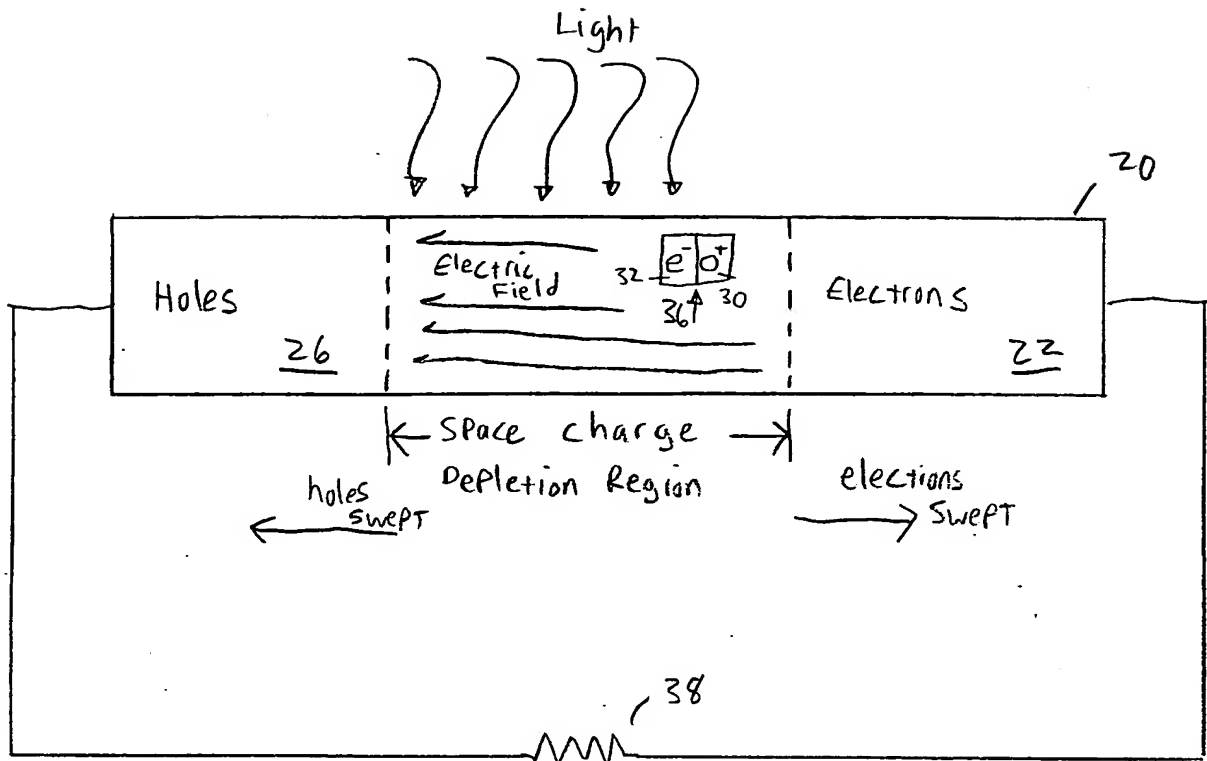 Light
20
Electric
Field
e⁻ o⁺
32
36 30
Holes
26
Electrons
22
Space charge
Depletion Region
holes
swept
elections
swept
38